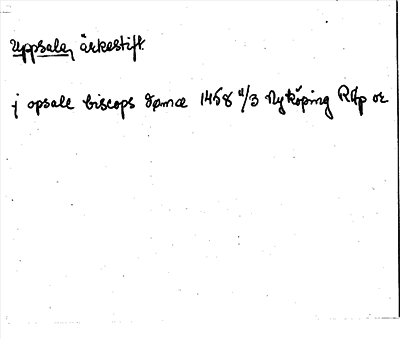 Uppsala, ärkestift.
j opsale biscops dømæ 1458 11/3 Nyköping RAp or